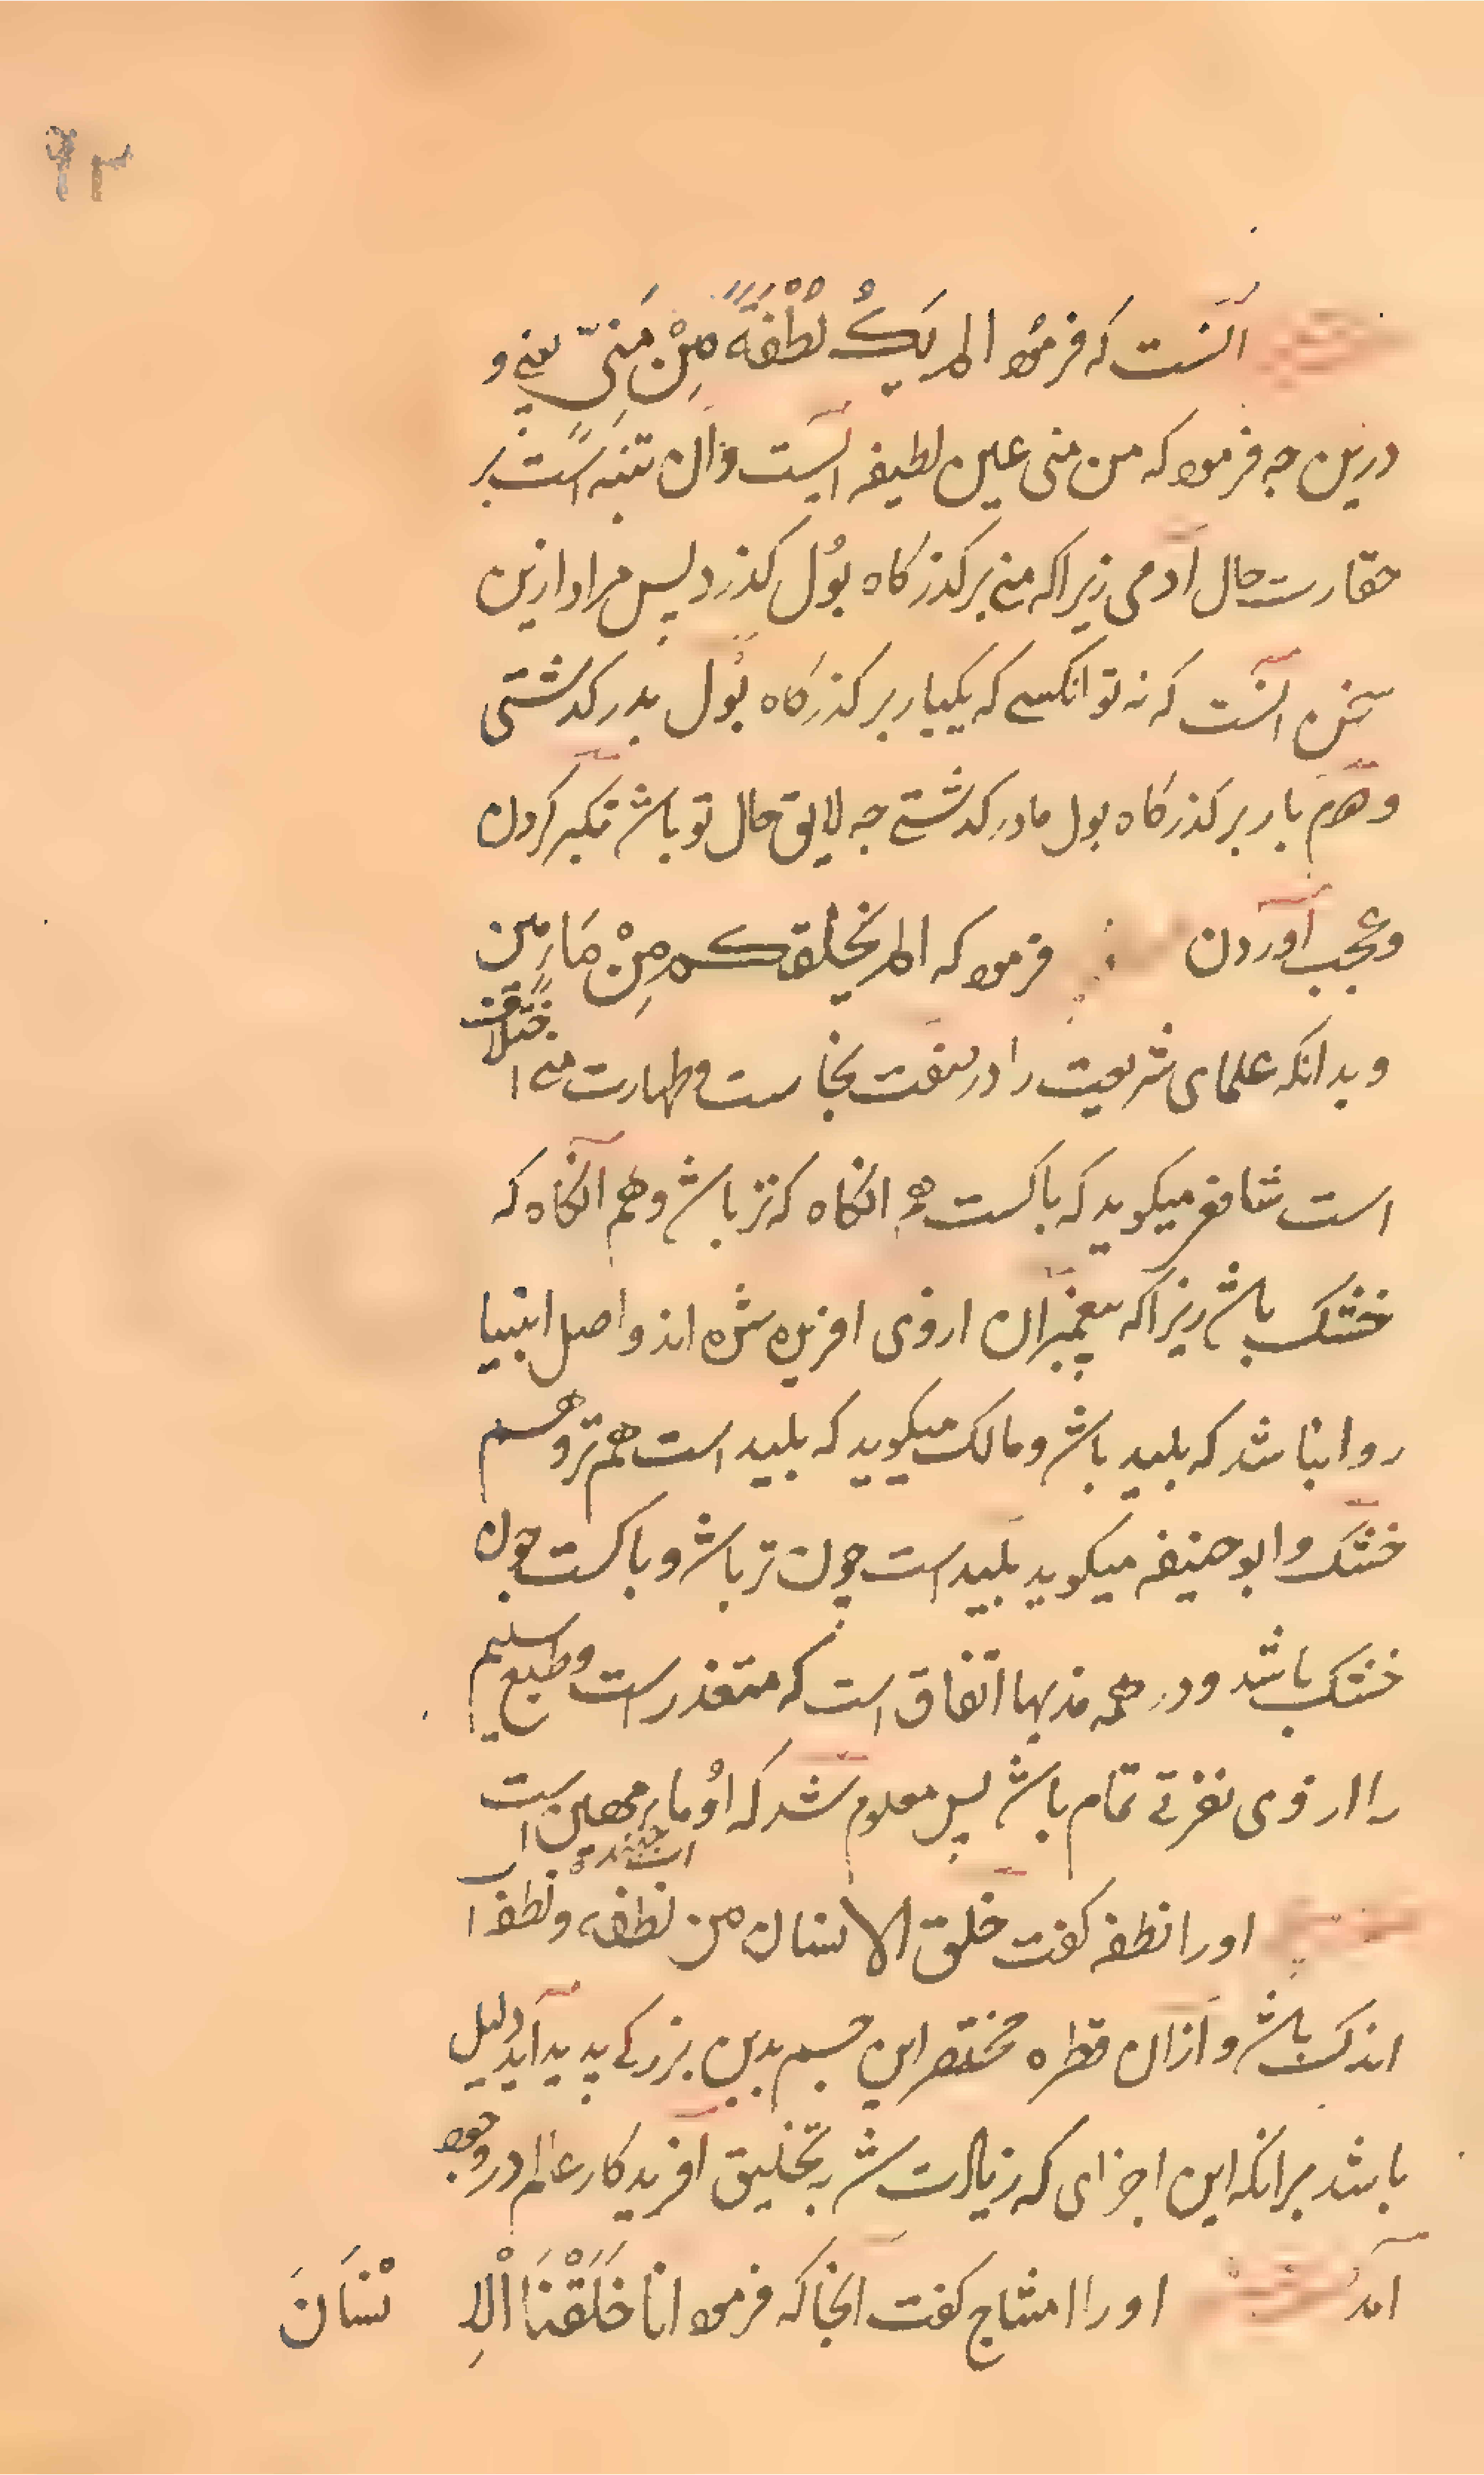 ۶۳
آنست که فرمود الم یک نُطْفَةً مِنْ مَنِیّ یمنی و
درین جه فرمود که من منی عین لطیفه ایست وآن تنبیه است بر
حقارت حال آدمی زیرا که منی بر کذرکاه بُول کذرد پس مراد ازین
سخن آنست که نه تو انکسی که یکبار بر کذرکاه بُول بدر کدشتی
وهم بار بر کذرکاه بول مادر کدشتی جه لایق حال تو باشد تکبر کردن
وعجب آوردن فرمود که الم نخلقکم مِنْ مَاءٍ مهین
وبدانکه علمای شریعت را در صفت نجاست وطهارت منی اختلاف
است شافعی میکوید که باکست هم انکاه که تر باشد وهم آنکاه که
خشک باشد زیرا که پیغمبران از وی افریده شده اند واصل انبیا
روا نباشد که بلید باشد ومالک میکوید که بلید است هم تر وهم
خشک وابو حنیفه میکوید بلید است چون تر باشد وباکست چون
خشک باشد ودر همه مذبها اتفاق است که متعذر است وطبع سلیم
را از وی نفرتی تمام باشد پس معلوم شد که اُو ماء مهین است
اورا نطفه کفت خلق الانسان من نطفه ونطفه آب
اندک باشد واز آن قطره مختصر این جسم بدین بزرکی پدید آید دلیل
باشد برانکه این اجزای که زیادت شد به تخلیق آفریدکار عالم در وجود
آمد اورا امشاج کفت آنجا که فرمود انا خَلَقْنَا اْلاِنْسَانَ